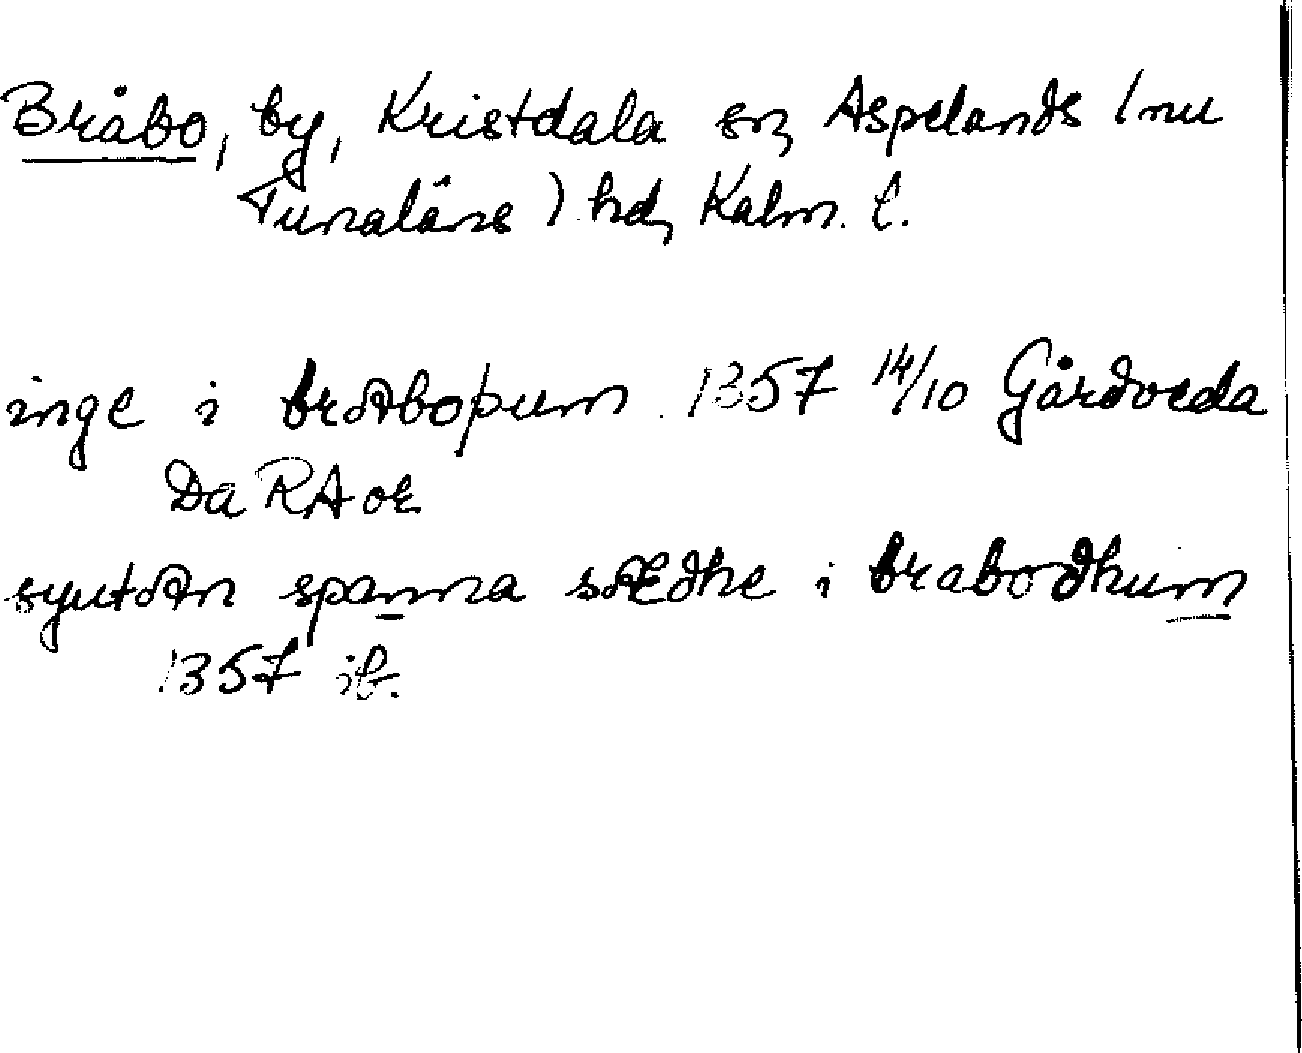 Bråbo, by, Kristdala sn, Aspelands (nu
Tunaläns) hd, Kalm. l.
inge i bradboþum 1357 14/10 Gårdveda
Da RA or
syutan spanna sædhe i brabodhum
1357 ib.